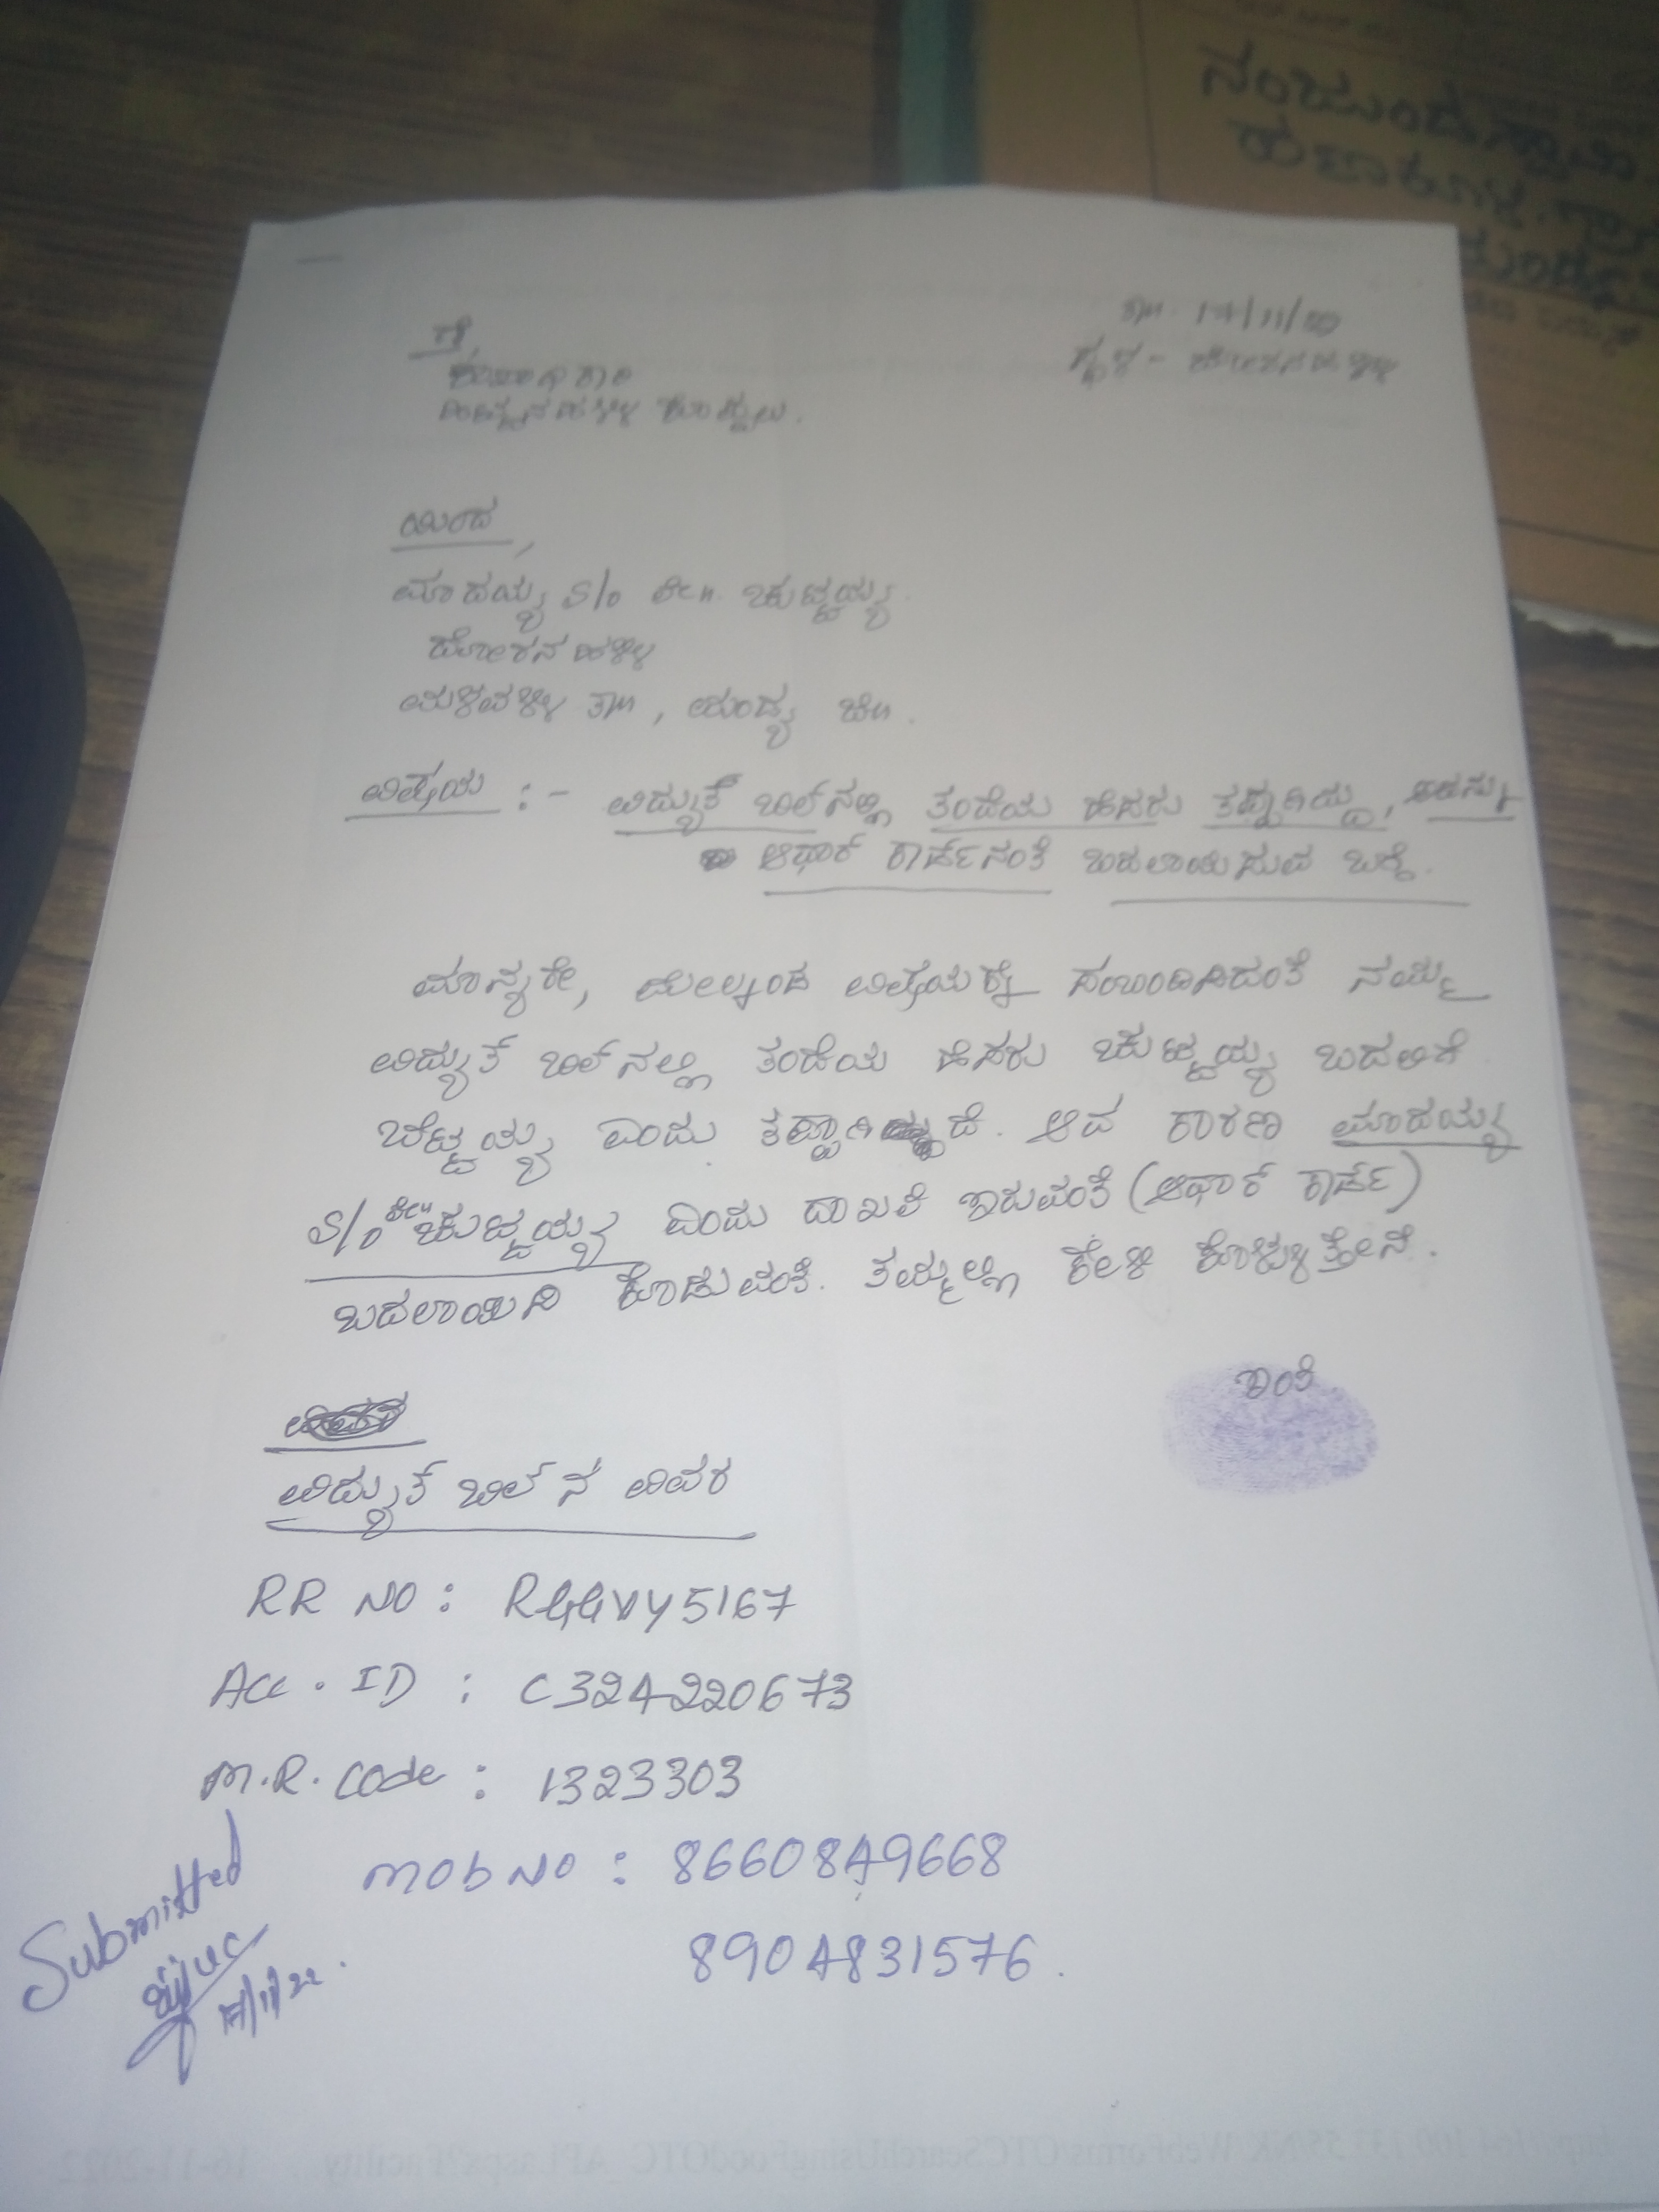 ಗೆ,
ಯಿಂದ,
ಮಾದಯ್ಯ S/o ಲೇ|| ಚುಟ್ಟಯ್ಯ
ಮಳವಳ್ಳಿ ತಾ||, ಮಂಡ್ಯ ಜಿ||.
ವಿಷಯ :- ವಿದ್ಯುತ್ ಬಿಲ್‌ನಲ್ಲಿ ತಂದೆಯ ಹೆಸರು ತಪ್ಪಾಗಿದ್ದು, ಅದನ್ನು
ಆಧಾರ್ ಕಾರ್ಡಿನಂತೆ ಬದಲಾಯಿಸುವ ಬಗ್ಗೆ.
ಮಾನ್ಯರೇ, ಮೇಲ್ಕಂಡ ವಿಷಯಕ್ಕೆ ಸಂಬಂದಿಸಿದಂತೆ ನಮ್ಮ
ವಿದ್ಯುತ್ ಬಿಲ್‌ನಲ್ಲಿ ತಂದೆಯ ಹೆಸರು ಚುಟ್ಟಯ್ಯ ಬದಲಿಗೆ
ಬೆಟ್ಟಯ್ಯ ಎಂದು ತಪ್ಪಾಗಿ. ಆದ ಕಾರಣ ಮಾದಯ್ಯ
S/o ಲೇ|| ಚುಟ್ಟಯ್ಯ ಎಂದು ದಾಖಲೆ ಇರುವಂತೆ (ಆಧಾರ್ ಕಾರ್ಡ್)
ಬದಲಾಯಿಸಿ ಕೊಡುವಂತೆ. ತಮ್ಮಲ್ಲಿ ಕೇಳಿ ಕೊಳ್ಳುತ್ತೇನೆ.
ಇಂತಿ
ವಿದ್ಯುತ್ ಬಿಲ್ ನ ವಿವರ
RR NO : RGGVY5167
Acc. ID : C324220673
M.R. Code : 1323303
mob NO : 8660849668
8904831576.
Submitted
17/11/22.